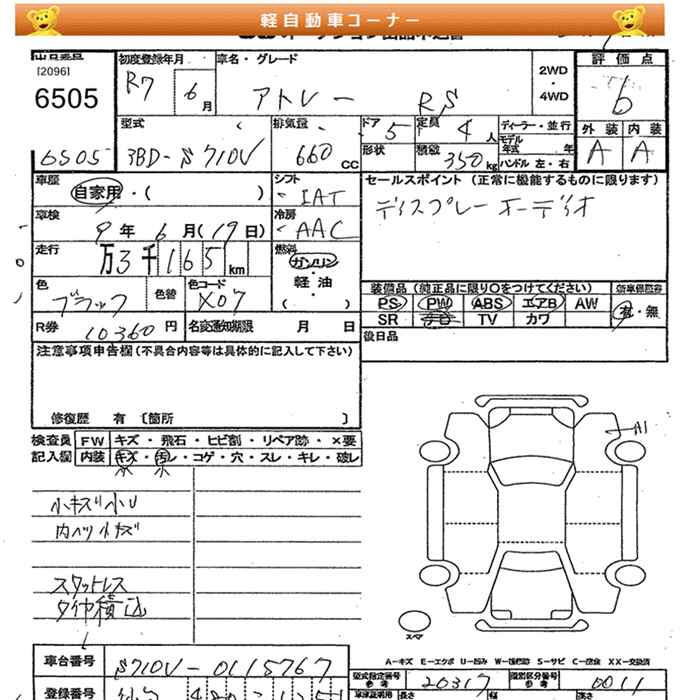 軽自動車コーナー
[2096]
6505
6505
初度登録年月
R7 6月
車名・グレード
アトレー RS
2WD
4WD
評価点
6
外装 内装
A A
型式
3BD-S710V
排気量
660 CC
ドア 5
形状
定員 4 人
積載 350 kg
ディーラー・並行
モデル年式 年
ハンドル 左・右
車歴
自家用・( )
シフト
IAT
セールスポイント (正常に機能するものに限ります)
ディスプレーオーディオ
車検
9年 6月(19日)
冷房
AAC
走行
万3千165km
燃料
ガソリン
・
軽油
・
( )
色
ブラック
色替
色コード
X07
装備品(純正品に限り○をつけてください)
PS PW ABS エアB AW
SR ナビ TV カワ
有・無
R券 10360円
名変通知期限 月 日
後日品
注意事項申告欄(不具合内容等は具体的に記入して下さい)
修復歴 有 〔箇所 〕
検査員
記入欄
FW キズ・飛石・ヒビ割・リペア跡・×要
内装 キズ・汚レ・コゲ・穴・スレ・キレ・破レ
小キズ小U
内ヘリ小キズ
スタットレス
タイヤ積込
A1
スペア
A-キズ E-エクボ U-凹み W-板補跡 S-サビ C-腐食 XX-交換済
車台番号
S710V-0115767
型式指定番号
参考
20317
類別区分番号
参考
0011
登録番号
長さ
高さ